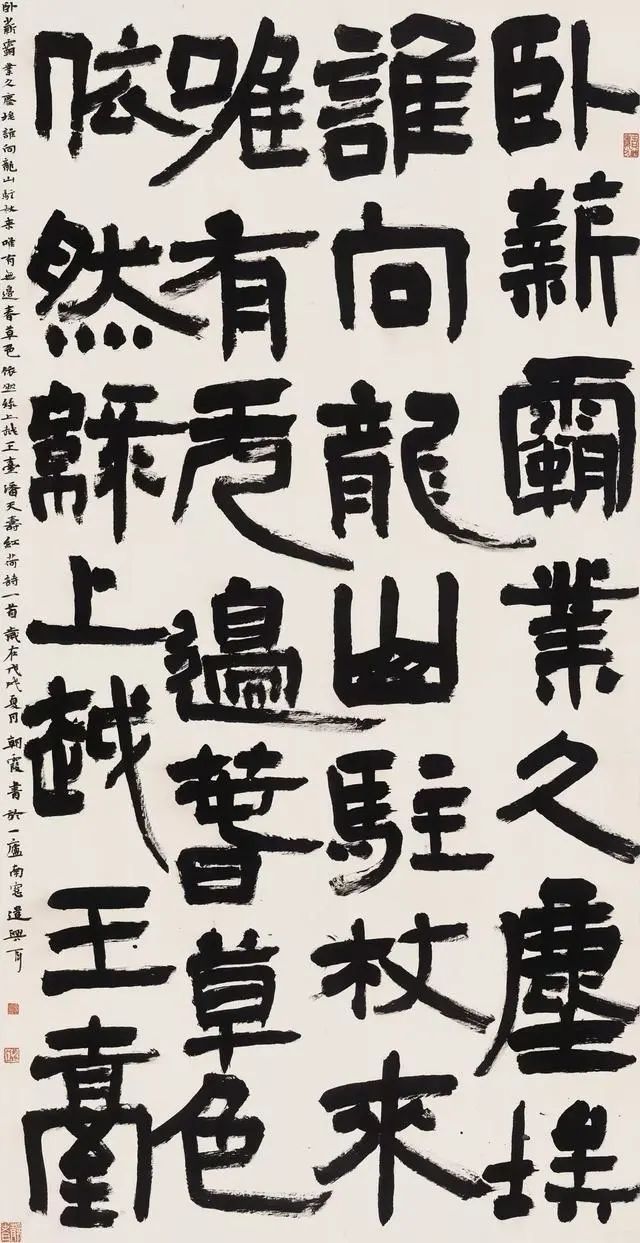 臥薪霸業久塵埃
誰向龍山駐杖來
唯有无邊春草色
依然綠上越王臺
卧薪霸業久塵埃誰向龍山駐杖來唯有無邊春草色依然綠上越王臺潘天壽紅荷詩一首歲在戊戌夏月朝霞書於一廬南窗遣興耳